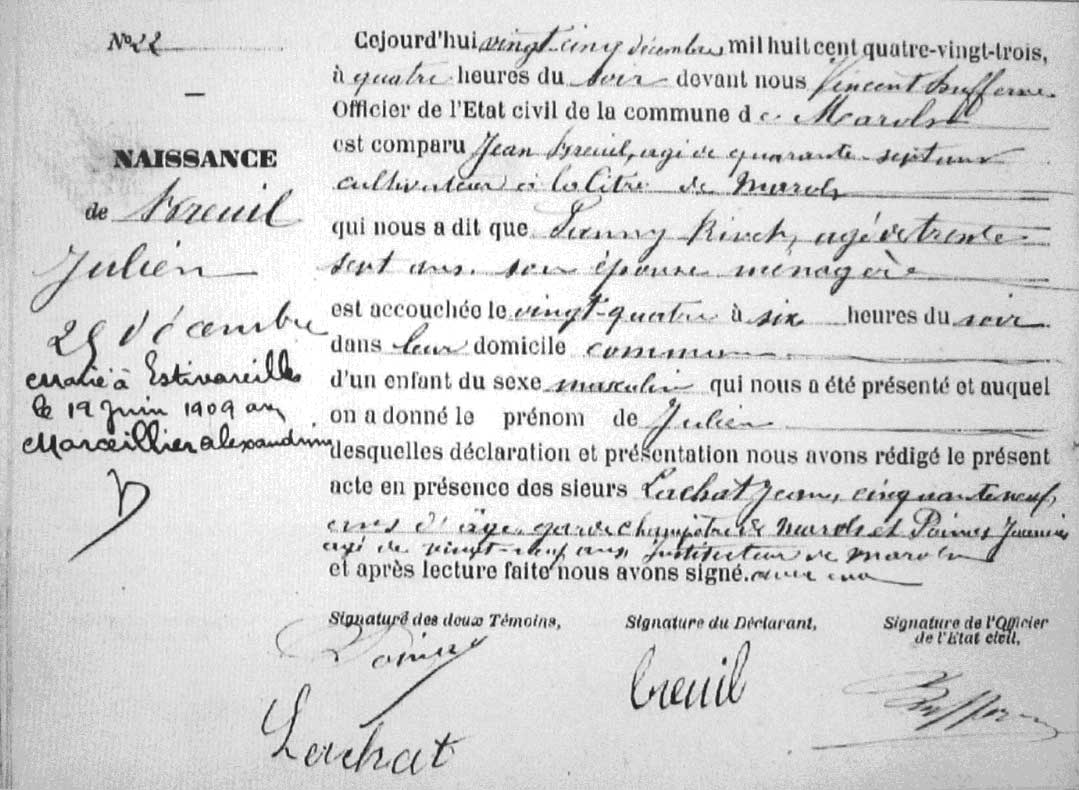 N° 22
NAISSANCE
de Breuil
Julien
25 décembre
Marié à Estivareilles
le 19 Juin 1909 avec
Marceillier alexandrine
Cejourd'hui vingt-cinq décembre mil huit cent quatre-vingt-trois,
à quatre heures du soir devant nous Vincent Bufferne
Officier de l'Etat civil de la commune de Marols
est comparu Jean Breuil, agé de quarante sept ans
cultivateur à de Marols
qui nous a dit que Fanny agé de trente
sept ans son épouse ménagère
est accouchée le vingt-quatre à six heures du soir
dans leur domicile commun
d'un enfant du sexe masculin qui nous a été présenté et auquel
on a donné le prénom de Julien
desquelles déclaration et présentation nous avons rédigé le présent
acte en présence des sieurs Lachat Jean, cinquante neuf
ans d'âge garde champêtre de Marols et
agé de vingt-neuf ans instituteur de marols
et après lecture faite nous avons signé. avec eux
Signature des deux Témoins,
Signature du Déclarant,
Signature de l'Officier
de l'Etat civil,
breuil
Bufferne
Lachat